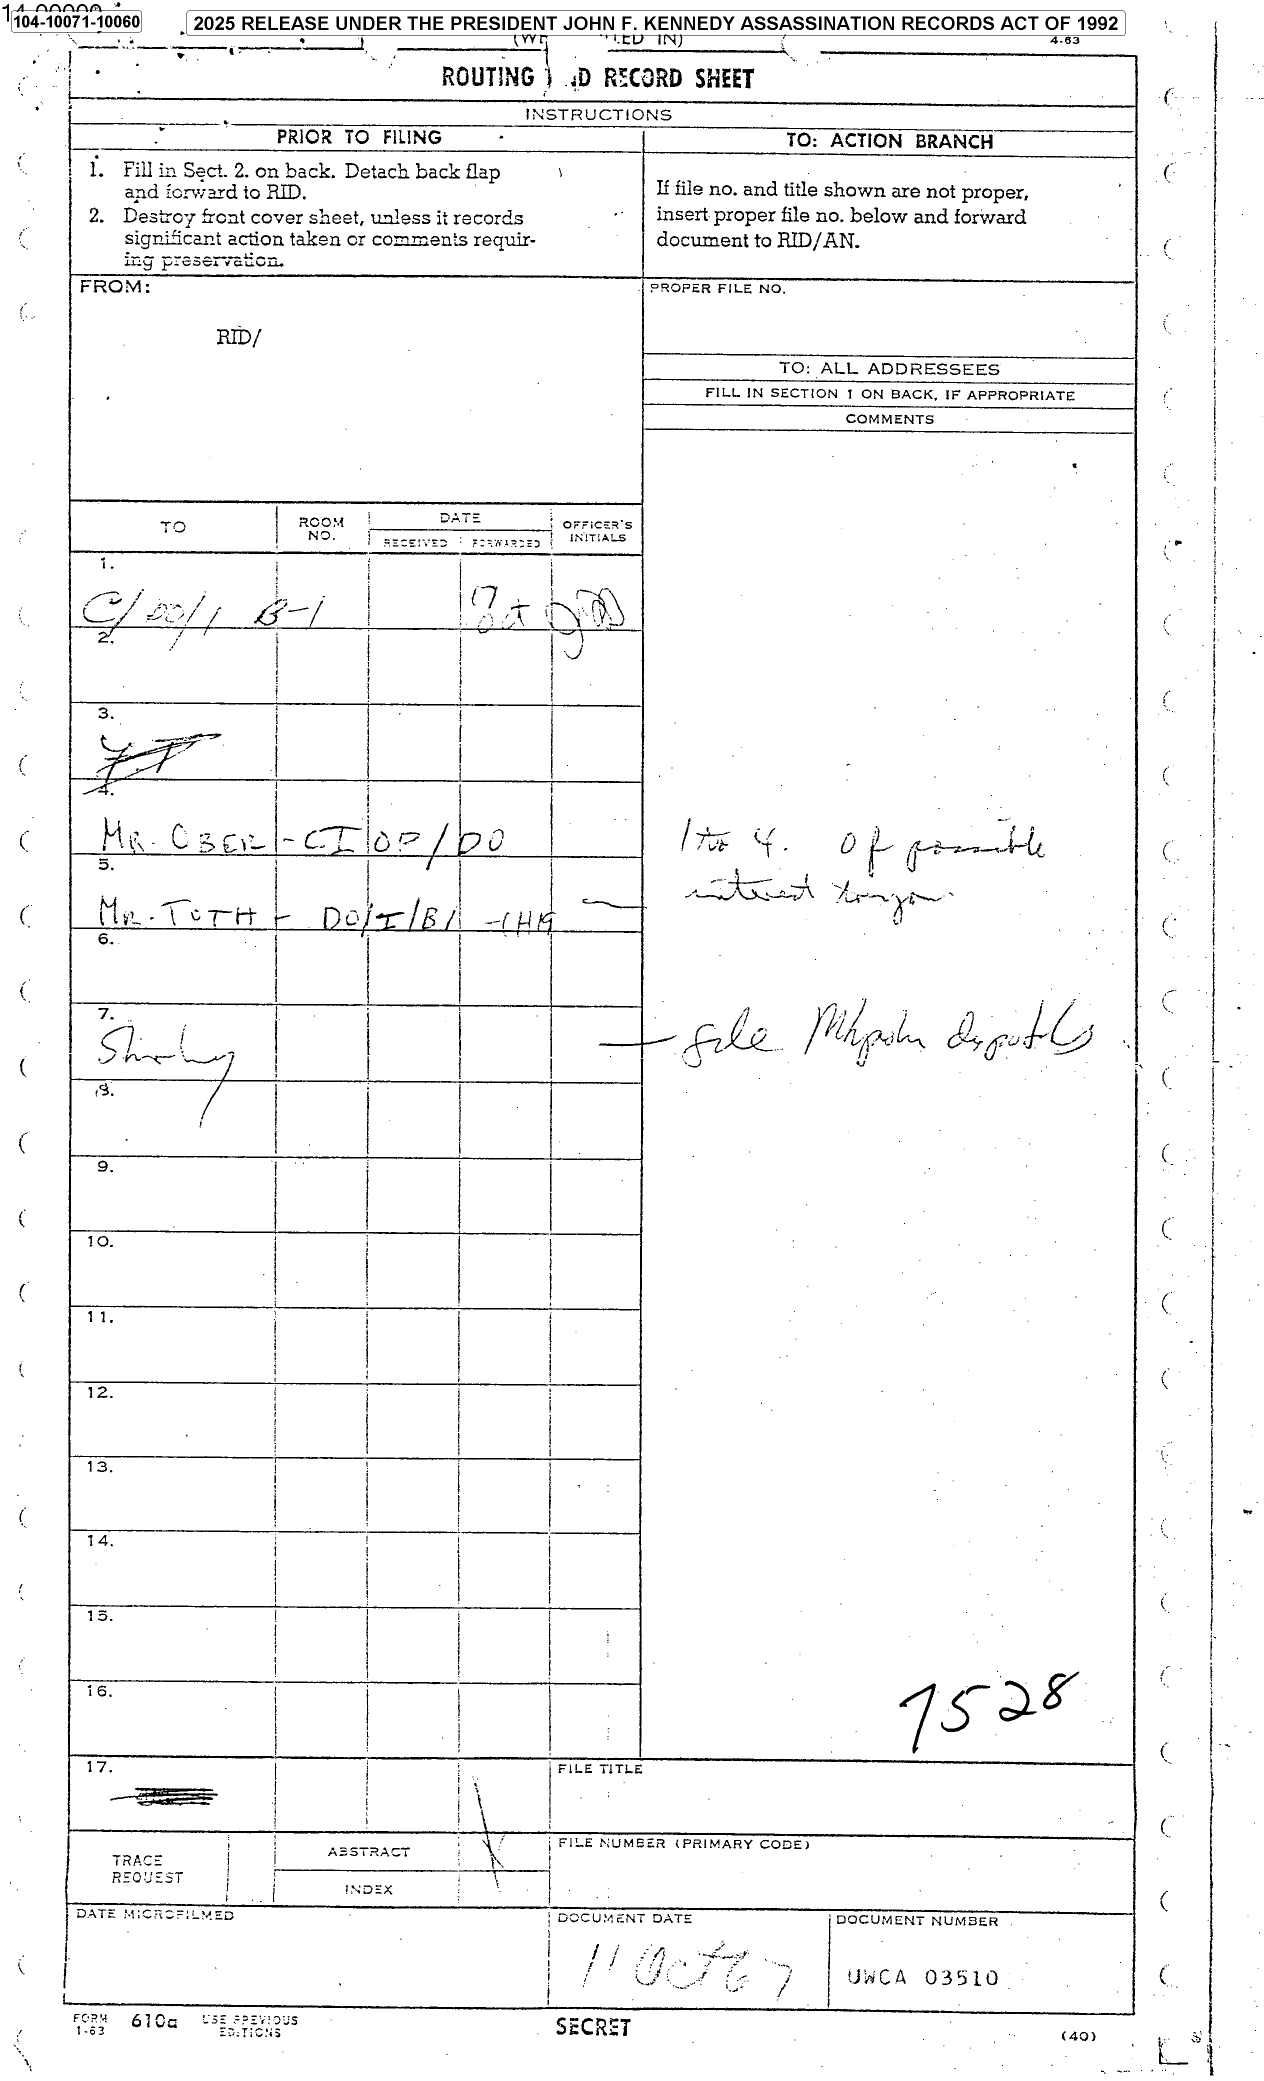 104-10071-10060
2025 RELEASE UNDER THE PRESIDENT JOHN F. KENNEDY ASSASSINATION RECORDS ACT OF 1992
4-63
ROUTING D RECORD SHEET
INSTRUCTIONS
PRIOR TO FILING
1. Fill in Sect. 2. on back. Detach back flap
and forward to RID.
2. Destroy front cover sheet, unless it records
significant action taken or comments requir-
ing preservation.
TO: ACTION BRANCH
If file no. and title shown are not proper,
insert proper file no. below and forward
document to RID/AN.
FROM:
RID/
PROPER FILE NO.
TO: ALL ADDRESSEES
FILL IN SECTION 1 ON BACK, IF APPROPRIATE
COMMENTS
TO
ROOM
NO.
DATE
RECEIVED
FORWARDED
OFFICER'S
INITIALS
1.
C/DO/1 B-1
2.
3.
4.
MR. OBER - CI OP/DO
1 to 4. Of possible
interest to you.
5.
MR. TOTH - DO/I/B1
6.
7.
Shirley
— file dispatch
8.
9.
10.
11.
12.
13.
14.
15.
16.
1528
17.
FILE TITLE
TRACE
REQUEST
ABSTRACT
INDEX
FILE NUMBER (PRIMARY CODE)
DATE MICROFILMED
DOCUMENT DATE
11 Oct 67
DOCUMENT NUMBER
UWCA 03510
FORM
1-63
610a
USE PREVIOUS
EDITIONS
SECRET
(40)